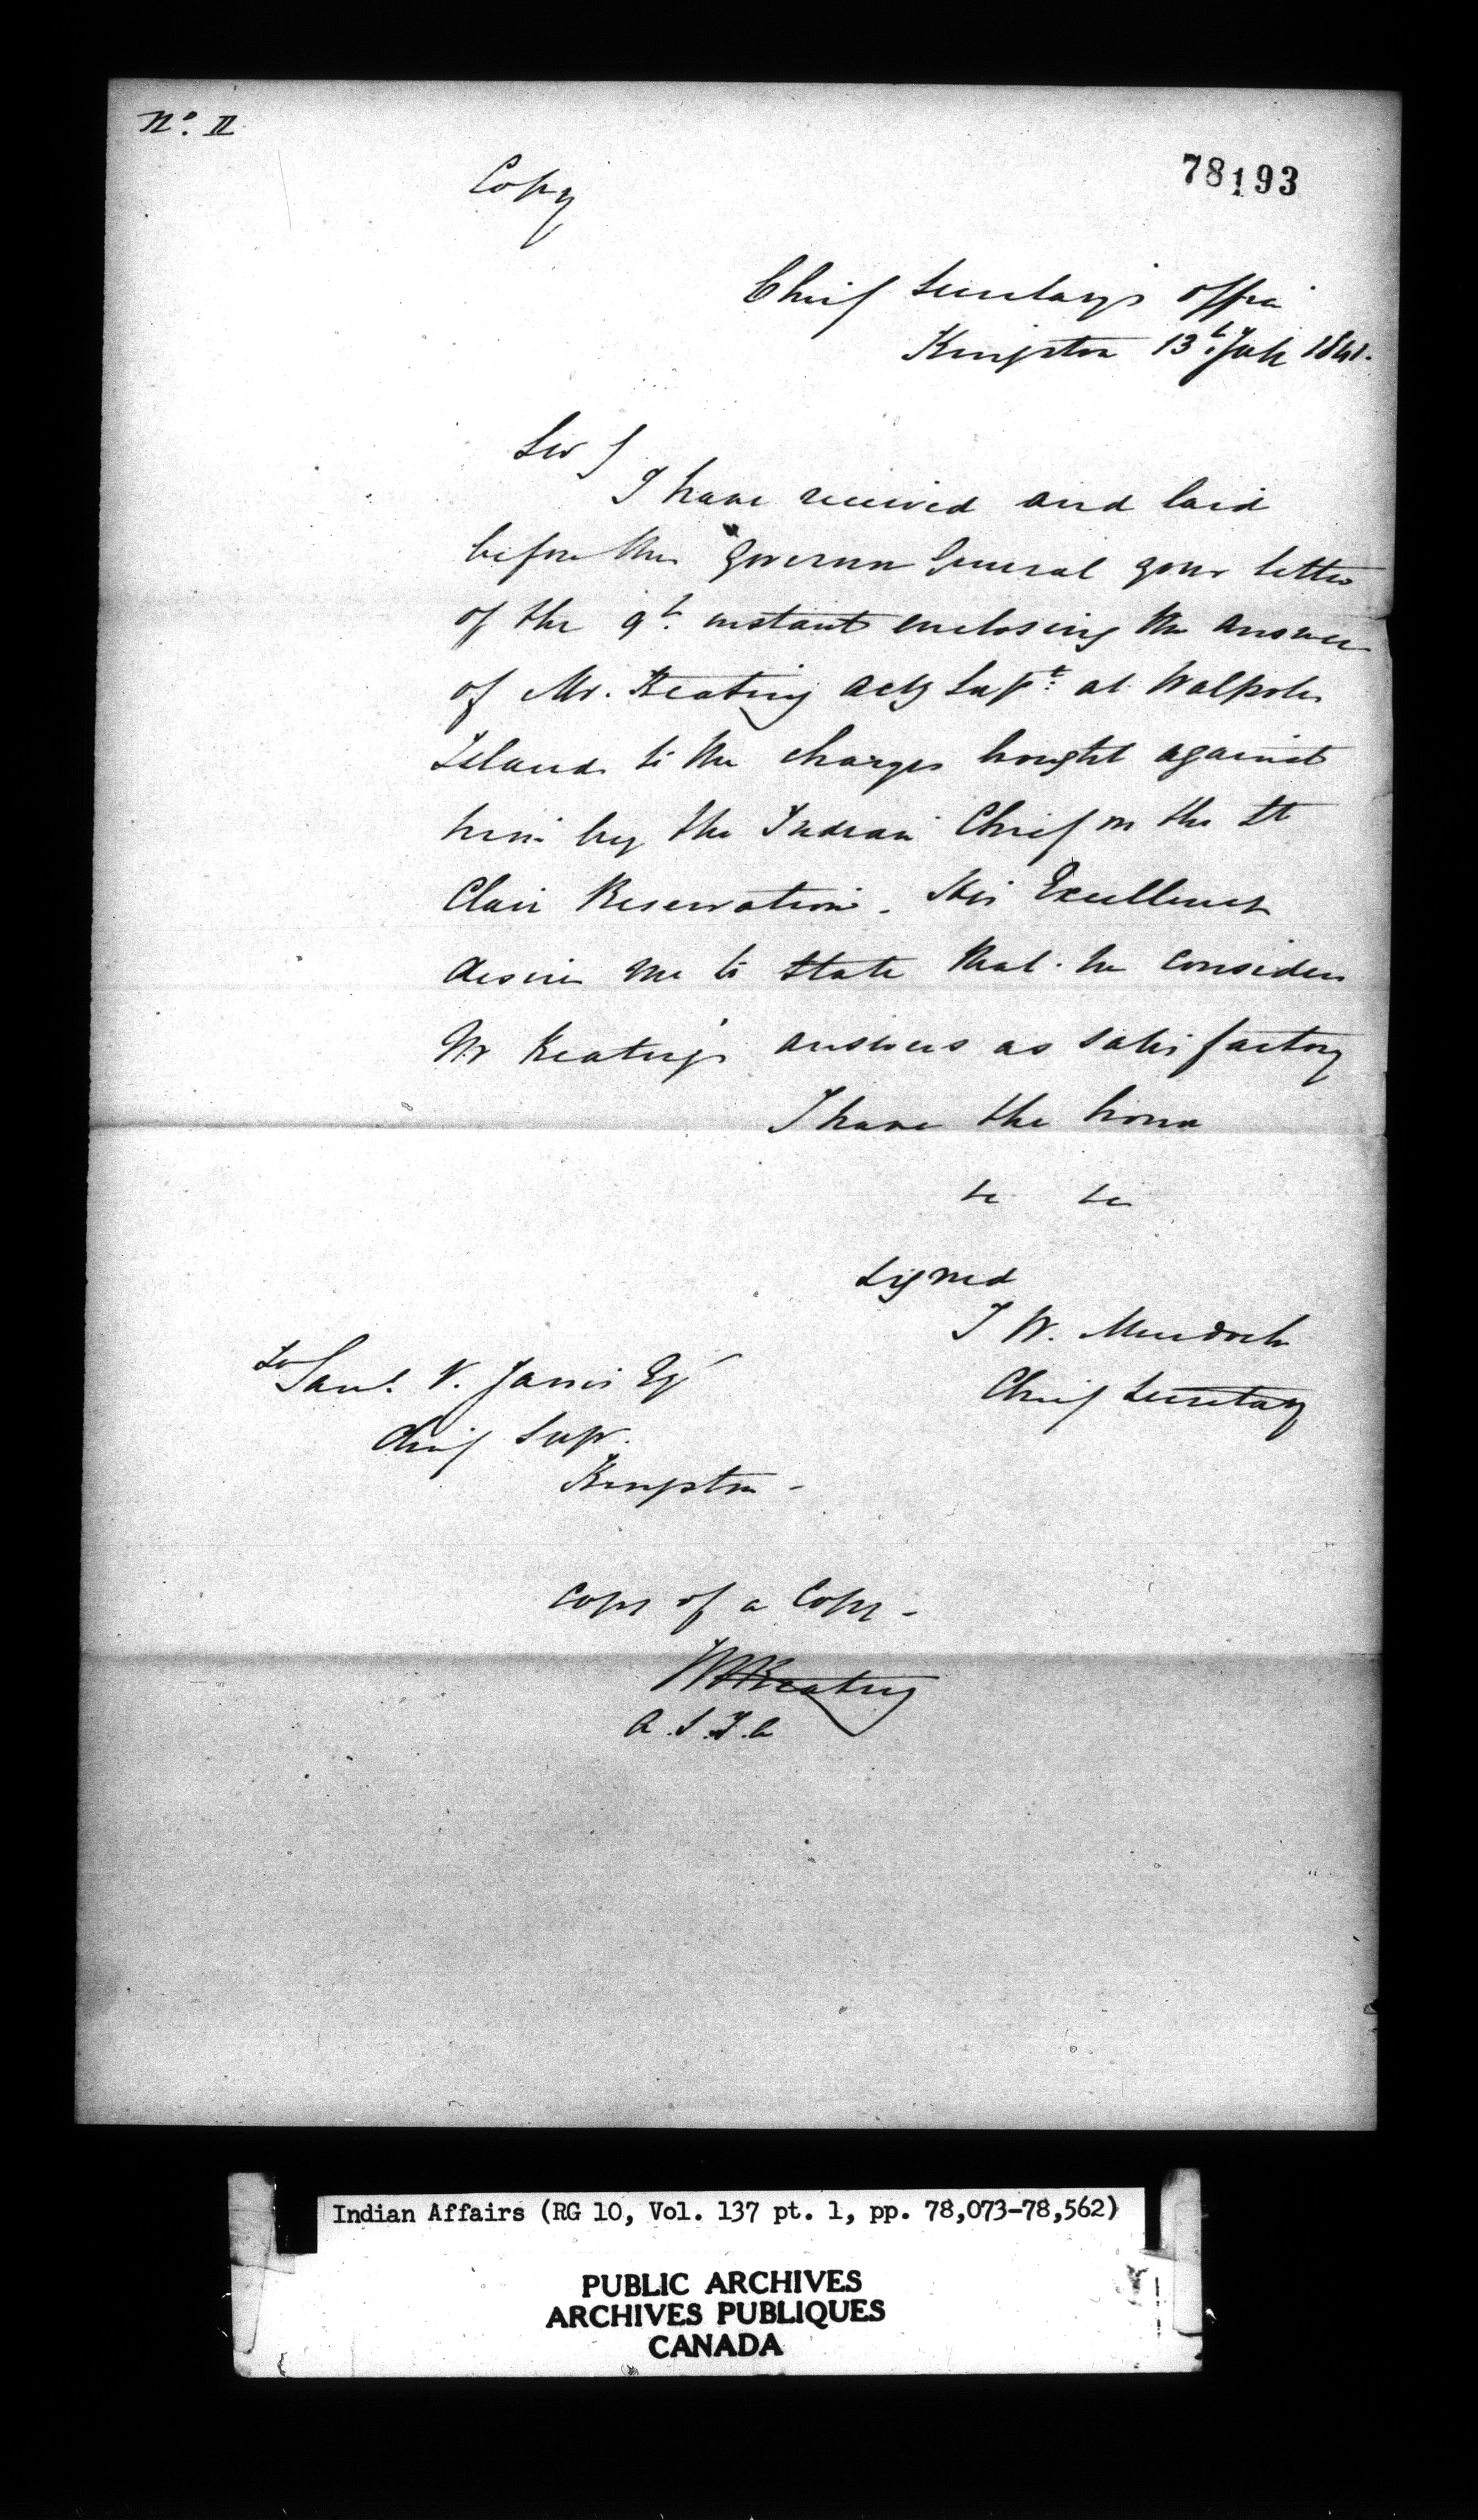 No. II
Copy
78193
Chief Secretary's Office
Kingston 13th July 1841.
Sir
I have received and laid
before the Governor General your letter
of the 9th. instant enclosing the answer
of Mr. Keating actg Supt. at Walpole
Island to the charges brought against
him by the Indian Chief on the St
Clair Reservation. His Excellency
desires me to state that he considers
Mr Keating's answers as satisfactory
I have the honor
&c &c
Signed
T W. Murdoch
Chief Secretary
To Saml. P. Jarvis Esqr
Chief Supr.
Kingston -
Copy of a Copy -
JWKeating
A.S.I.A
Indian Affairs (RG 10, Vol. 137 pt. 1, pp. 78,073-78,562)
PUBLIC ARCHIVES
ARCHIVES PUBLIQUES
CANADA